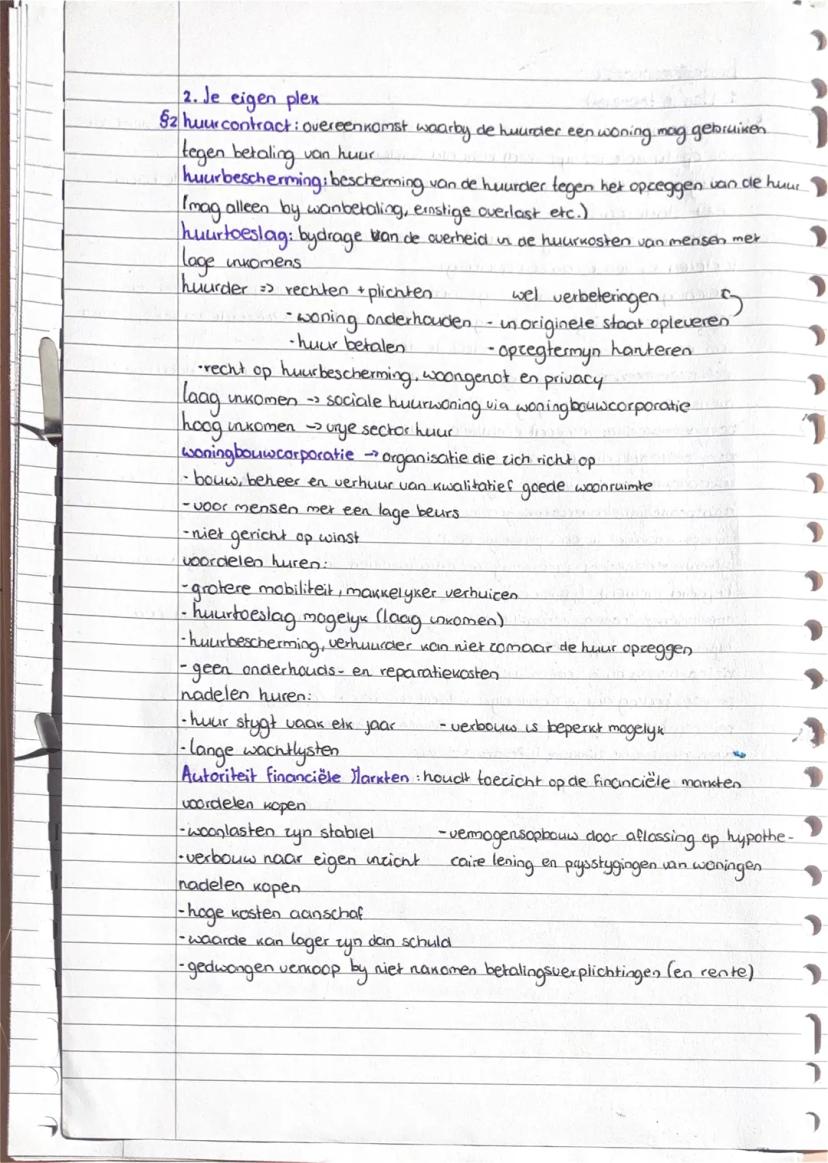 2. Je eigen plek
§2 huurcontract: overeenkomst waarby de huurder een woning mag gebruiken
tegen betaling van huur
huurbescherming: bescherming van de huurder tegen het opzeggen van de huur
(mag alleen by wanbetaling, ernstige overlast etc.)
huurtoeslag: bydrage van de overheid in de huurkosten van mensen met
lage inkomens
huurder => rechten + plichten wel verbeteringen
- woning onderhouden - in originele staat opleveren
- huur betalen - opzegtermyn hanteren
- recht op huurbescherming, woongenot en privacy
laag inkomen -> sociale huurwoning via woningbouwcorporatie
hoog inkomen -> vrye sector huur
woningbouwcorporatie -> organisatie die zich richt op
- bouw, beheer en verhuur van kwalitatief goede woonruimte
- voor mensen met een lage beurs
- niet gericht op winst
voordelen huren:
- grotere mobiliteit, makkelyker verhuizen
- huurtoeslag mogelyk (laag inkomen)
- huurbescherming, verhuurder kan niet zomaar de huur opzeggen
- geen onderhouds- en reparatiekosten
nadelen huren:
- huur stygt vaak elk jaar - verbouw is beperkt mogelyk
- lange wachtlysten
Autoriteit Financiële Markten: houdt toezicht op de financiële markten
voordelen kopen
- woonlasten zyn stabiel - vermogensopbouw door aflossing op hypothe-
- verbouw naar eigen inzicht caire lening en prysstygingen van woningen
nadelen kopen
- hoge kosten aanschaf
- waarde kan lager zyn dan schuld
- gedwongen verkoop by niet nakomen betalingsverplichtingen (en rente)